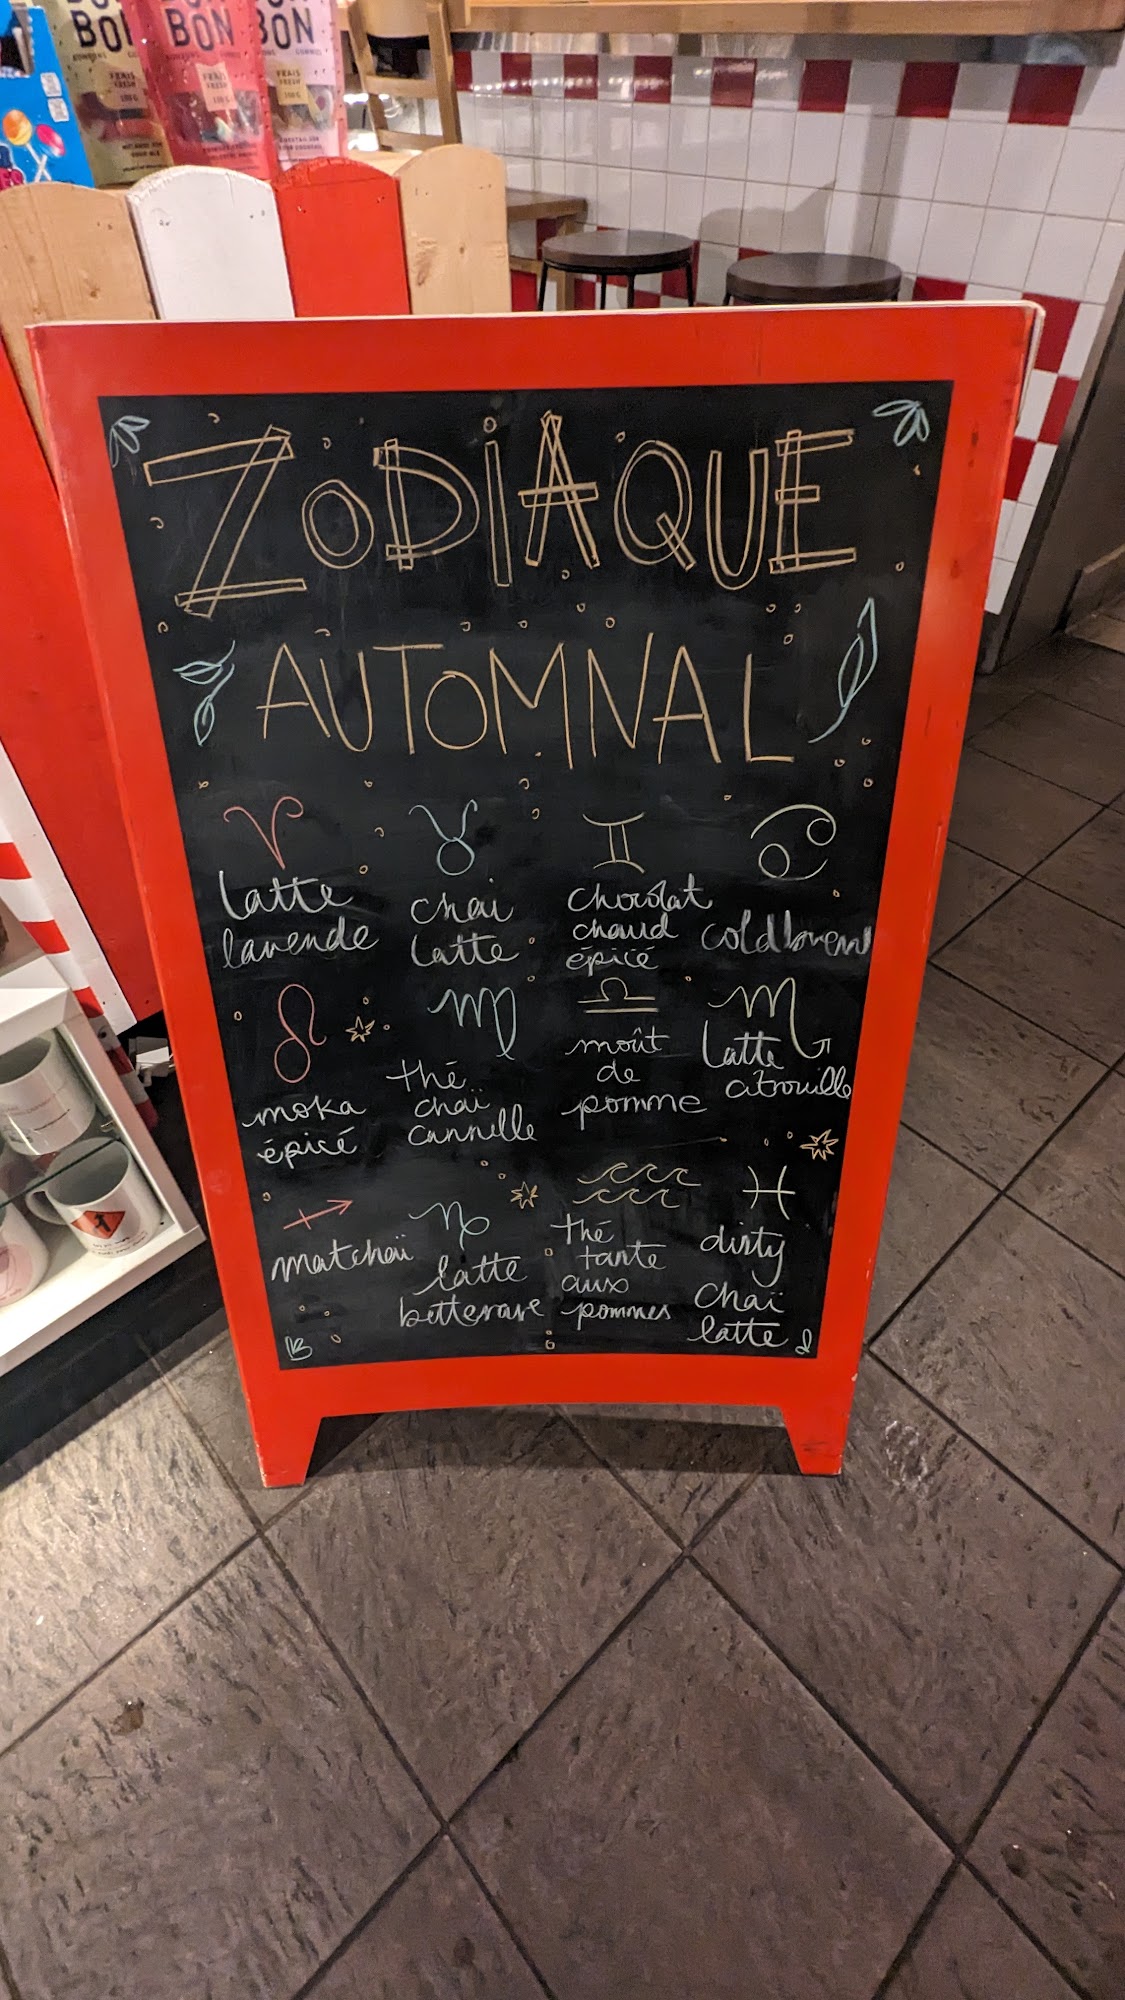 BON
BON
BON
BONBONS GUMMIES
FRAIS
FRESH
ZODIAQUE
AUTOMNAL
latte
lavende
chai
latte
chocolat
chaud
épicé
coldbrew
moka
épicé
thé
chaï
cannelle
moût
de
pomme
latte
citrouille
matchaï
latte
betterave
thé
tarte
aux
pommes
dirty
chaï
latte